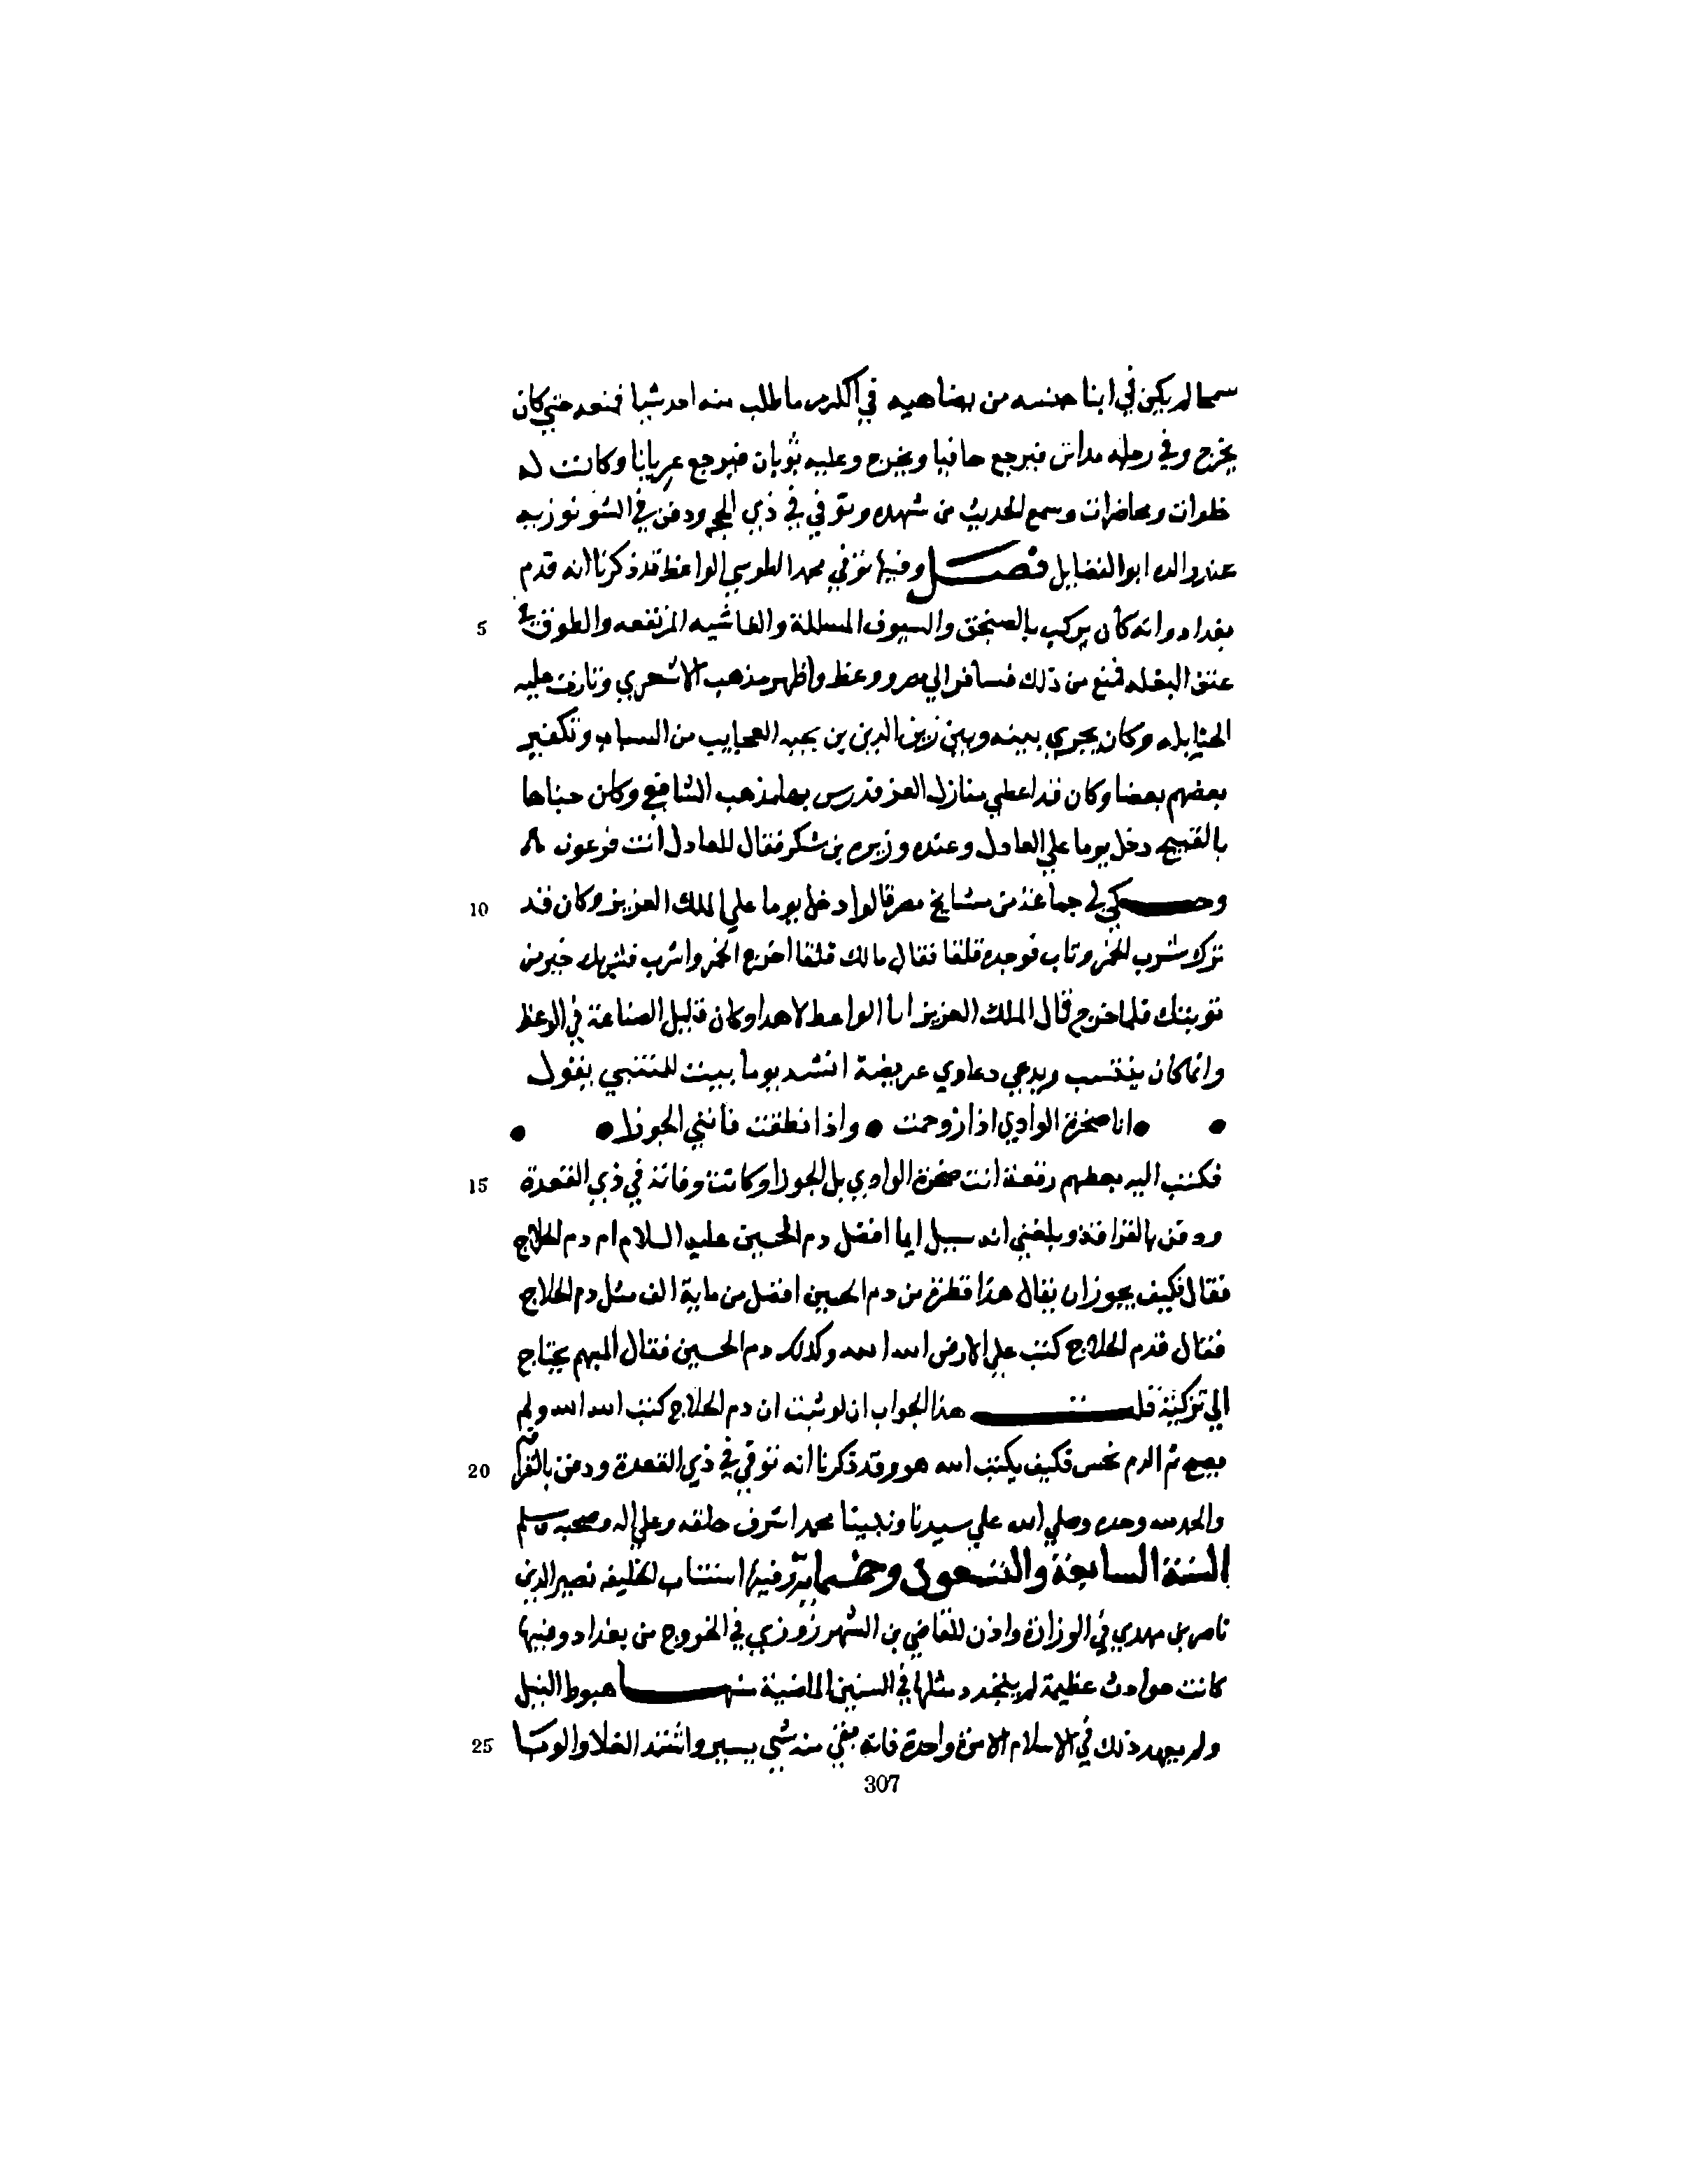 سمحا لم يكن في ابنا جنسه من يضاهيه في الكرم ما طلب منه احد شيا فمنعه حتي كان
يخرج وفي رجله مداس فيرجع حافيا ويخرج وعليه ثوبان فيرجع عريانا وكانت له
خلوات ومحاضرات وسمع الحديث من شهده وتوفي في ذي الحجه ودفن في الشونوزيه
عند والده ابو الفضايل فصل وفيها توفي محمد الطوسي الواعظ قد ذكرنا انه قدم
5 بغداد وانه كان يركب بالصنجق والسيوف المسللة والغاشيه المرتفعه والطوق في
عنق البغله فمنع من ذلك فسافر الي مصر ووعظ واظهر مذهب الاشعري وثارت عليه
الحنابله وكان يجري بينه وبين زين الدين بن نجيه العجايب من السباب وتكفير
بعضهم بعضا وكان قد اعطي منازل العز فدرس بها مذهب الشافعي وكان
بالقبيح دخل يوما علي العادل وعنده وزيره بن شكر فقال للعادل انت فرعون
10 وحكي لي جماعة من مشايخ مصر قالوا دخل يوما علي الملك العزيز وكان قد
ترك شرب الخمر وتاب فوجده قلقا فقال مالك قلقا اخرج الخمر واشرب فشربك خير من
توبتك فلما خرج قال الملك العزيز اما الواعظ لا هدا وكان قليل الصناعة في الوعظ
وانما كان ويدعي دعاوي عريضة انشد يوما ببيت للمتنبي يقول
• • انا صخرة الوادي اذا زوحمت • واذا نطقت فانني الجوزا • •
15 فكتب اليه بعضهم رقعة انت صخرة الوادي بل الجوزا وكانت وفاته في ذي القعدة
ودفن بالقرافة وبلغني انه سيل ايما افضل دم الحسين عليه السلام ام دم الحلاج
فقال فكيف يجوز ان يقال هذا قطرة من دم الحسين افضل من ماية الف مثل دم الحلاج
فقال فدم الحلاج كتب علي الارض الله الله وكذلك دم الحسين فقال المبهم يحتاج
الي تزكية قلت هذا الجواب ان لو ثبت ان دم الحلاج كتب الله الله ولم
20 يصح ثم الدم نجس فكيف يكتب الله هو وقد ذكرنا انه توفي في ذي القعدة ودفن بالقرافه
والحمد لله وحده وصلي الله علي سيدنا ونبينا محمد اشرف خلقه وعلي اله وصحبه وسلم
السنة السابعة والتسعون وخمسماية وفيها استناب الخليفه نصير الدين
ناصر بن مهدي في الوزارة واذن للقاضي بن الشهرزوزي في الخروج من بغداد وفيها
كانت حوادث عظيمة لم يتجدد مثلها في السنين الماضية منها هبوط النيل
25 ولم يعهد ذلك في الاسلام الا مرة واحدة فانه بقي منه شي يسير واشتد الغلا والوبا
307